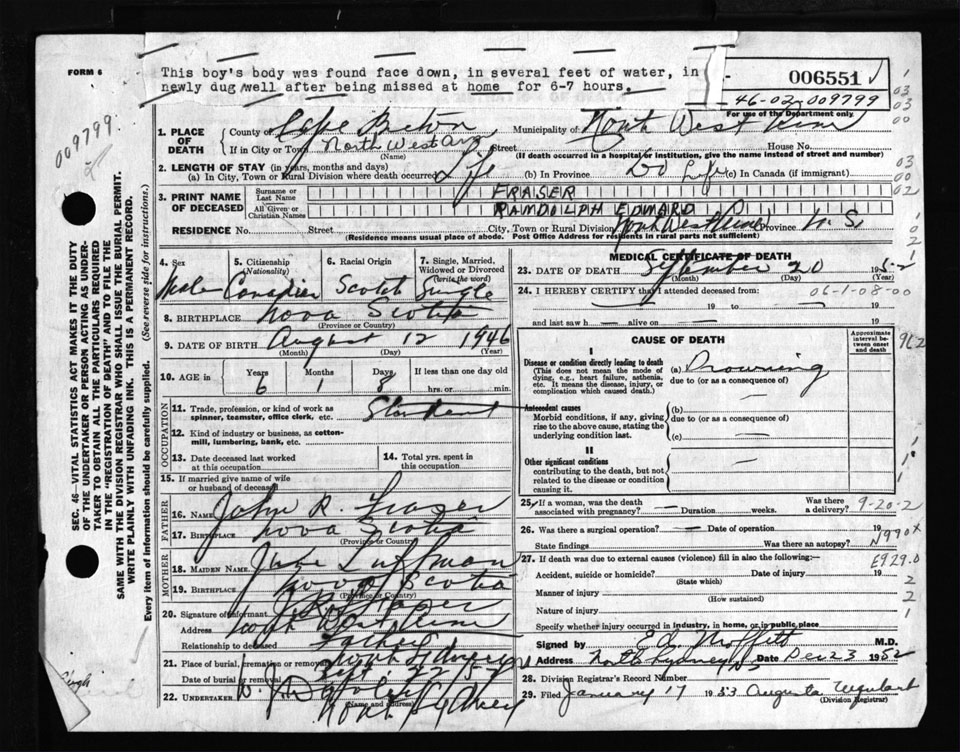 FORM 6
This boy's body was found face down, in several feet of water, in
newly dug well after being missed at home for 6-7 hours.
006551
46-02-009799
For use of the Department only.
009799
1. PLACE OF DEATH
County of Cape Breton Municipality of North West Arm
If in City or Town North West Arm Street House No.
(Name) (If death occurred in a hospital or institution, give the name instead of street and number)
2. LENGTH OF STAY (in years, months and days)
(a) In City, Town or Rural Division where death occurred Life (b) In Province Do Life (c) In Canada (if immigrant)
3. PRINT NAME OF DECEASED
Surname or Last Name FRASER
All Given or Christian Names RANDOLPH EDWARD
RESIDENCE No. Street City, Town or Rural Division North West Arm Province N. S.
(Residence means usual place of abode. Post Office Address for residents in rural parts not sufficient)
4. Sex Male
5. Citizenship (Nationality) Canadian
6. Racial Origin Scotch
7. Single, Married, Widowed or Divorced (Write the word) Single
8. BIRTHPLACE Nova Scotia
(Province or Country)
9. DATE OF BIRTH August 12 1946
(Month) (Day) (Year)
10. AGE in Years 6 Months 1 Days 8 If less than one day old hrs. or min.
OCCUPATION
11. Trade, profession, or kind of work as spinner, teamster, office clerk, etc. Student
12. Kind of industry or business, as cotton-mill, lumbering, bank, etc.
13. Date deceased last worked at this occupation
14. Total yrs. spent in this occupation
15. If married give name of wife or husband of deceased
FATHER
16. NAME John R. Fraser
17. BIRTHPLACE Nova Scotia
(Province or Country)
MOTHER
18. MAIDEN NAME
19. BIRTHPLACE Nova Scotia
(Province or Country)
20. Signature of informant
Address North West Arm
Relationship to deceased Father
21. Place of burial, cremation or removal North Sydney
Date of burial or removal Sept
22. UNDERTAKER
North Sydney
(Name and address)
MEDICAL CERTIFICATE OF DEATH
23. DATE OF DEATH September 20 1952
(Month) (Day) (Year)
24. I HEREBY CERTIFY that I attended deceased from 06-1-08-00
19 to 19
and last saw h alive on 19
CAUSE OF DEATH
Approximate interval between onset and death
I
Disease or condition directly leading to death
(This does not mean the mode of dying, e.g., heart failure, asthenia, etc. It means the disease, injury, or complication which caused death.)
(a) Drowning
due to (or as a consequence of)
Antecedent causes
Morbid conditions, if any, giving rise to the above cause, stating the underlying condition last.
(b)
due to (or as a consequence of)
(c)
II
Other significant conditions
contributing to the death, but not related to the disease or condition causing it.
25. If a woman, was the death associated with pregnancy? Duration weeks. Was there a delivery? 9-20-2
26. Was there surgical operation? Date of operation 19
State findings Was there an autopsy? N990X
27. If death was due to external causes (violence) fill in also the following:- E929.0
Accident, suicide or homicide? Date of injury 19
(State which)
Manner of injury
(How sustained)
Nature of injury
Specify whether injury occurred in industry, in home, or in public place
Signed by M.D.
Address North Sydney NS Date Dec 23 1952
28. Division Registrar's Record Number
29. Filed January 17 1953 Augusta Urquhart
(Division Registrar)
SEC. 46—VITAL STATISTICS ACT MAKES IT THE DUTY
OF THE UNDERTAKER OR PERSON ACTING AS UNDER-
TAKER TO OBTAIN ALL THE PARTICULARS REQUIRED
IN THE "REGISTRATION OF DEATH" AND TO FILE THE
SAME WITH THE DIVISION REGISTRAR WHO SHALL ISSUE THE BURIAL PERMIT.
WRITE PLAINLY WITH UNFADING INK. THIS IS A PERMANENT RECORD.
Every item of Information should be carefully supplied. (See reverse side for instructions.)